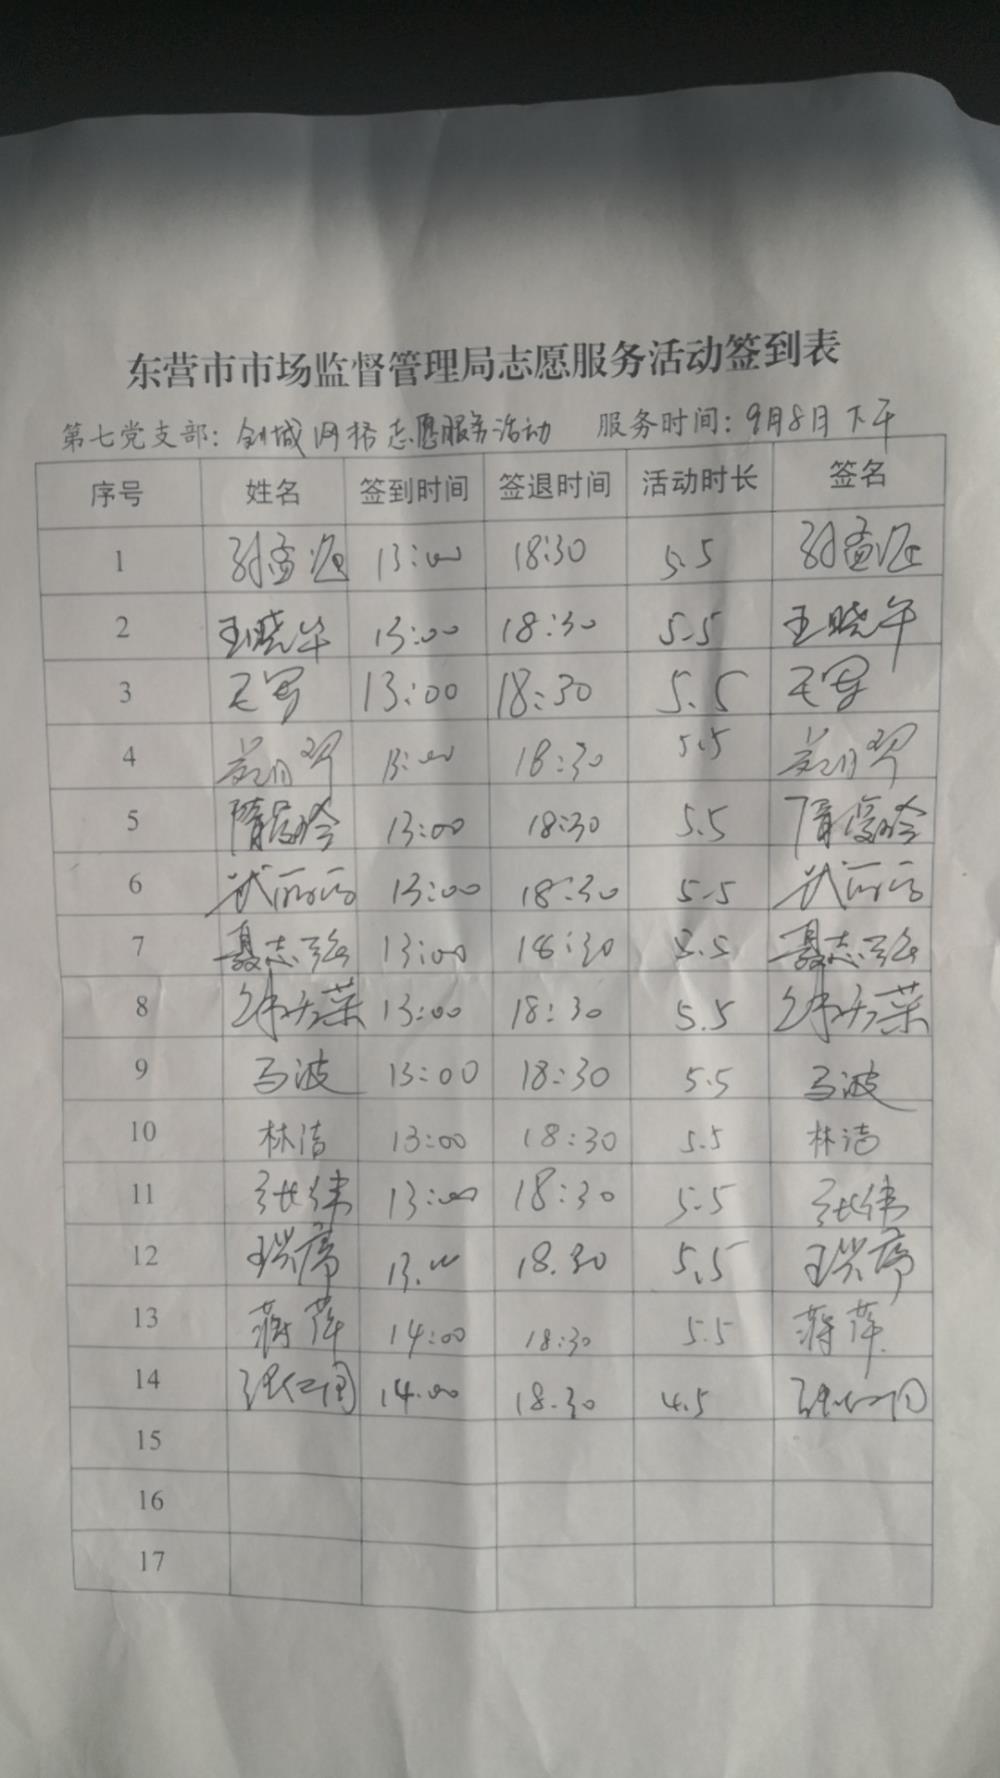 东营市市场监督管理局志愿服务活动签到表
第七党支部：创城网格志愿服务活动 服务时间：9月8日下午
序号 姓名 签到时间 签退时间 活动时长 签名
1 13:00 18:30 5.5
2 王晓华 13:00 18:30 5.5 王晓华
3 13:00 18:30 5.5
4 13:00 18:30 5.5
5 13:00 18:30 5.5
6 13:00 18:30 5.5
7 聂志强 13:00 18:30 5.5 聂志强
8 13:00 18:30 5.5
9 马波 13:00 18:30 5.5 马波
10 林洁 13:00 18:30 5.5 林洁
11 张伟 13:00 18:30 5.5 张伟
12 13.00 18.30 5.5
13 蒋萍 14:00 18:30 5.5 蒋萍
14 14.00 18.30 4.5
15
16
17